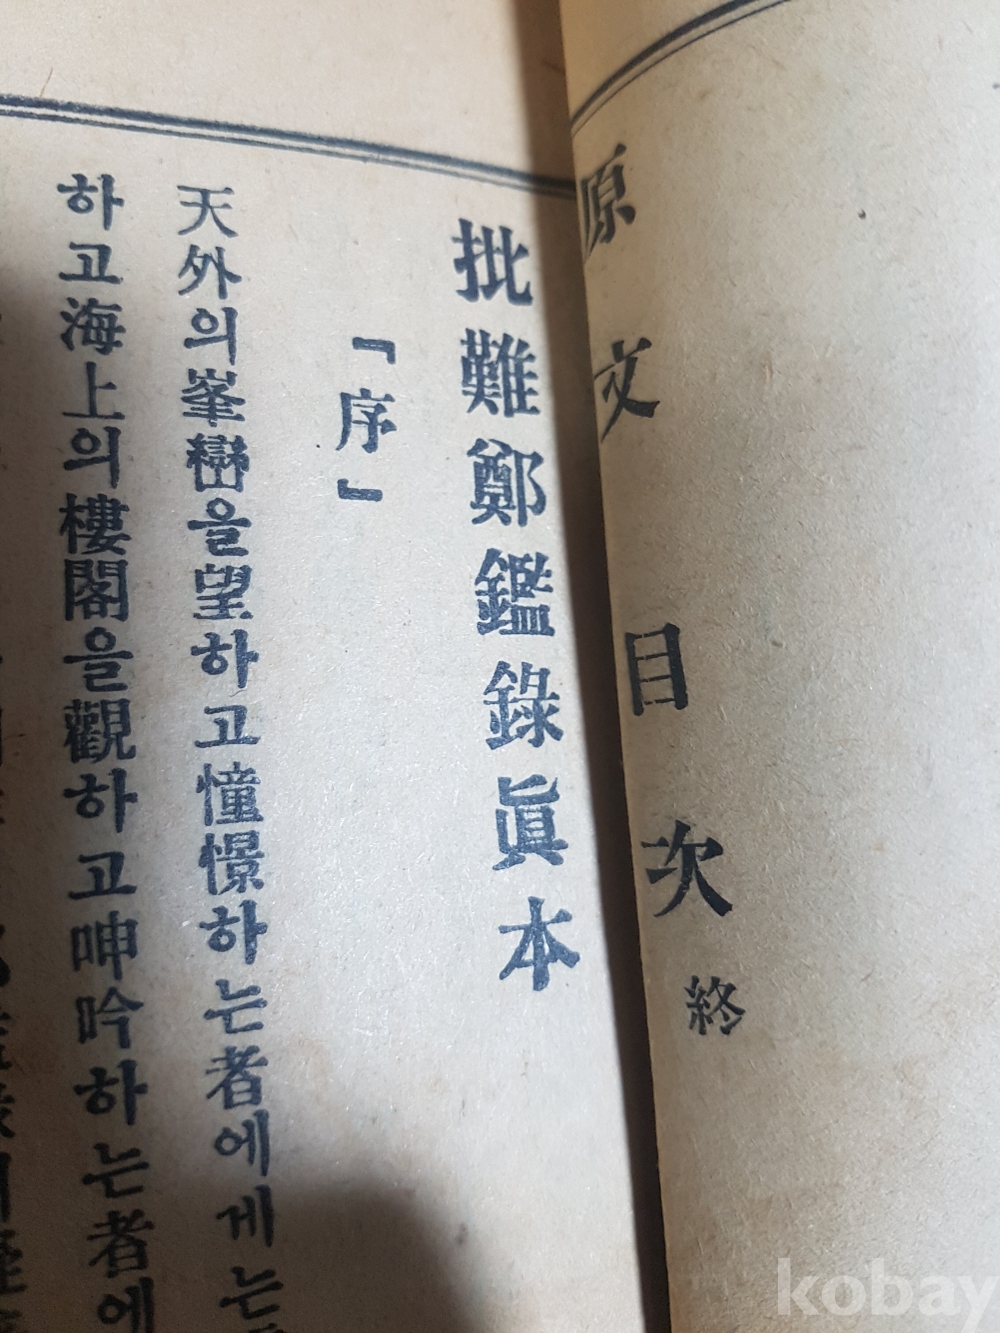 原文目次 終
批難鄭鑑錄眞本
「序」
天外의峯巒을望하고憧憬하는者에게는
하고海上의樓閣을觀하고呻吟하는者에
kobay